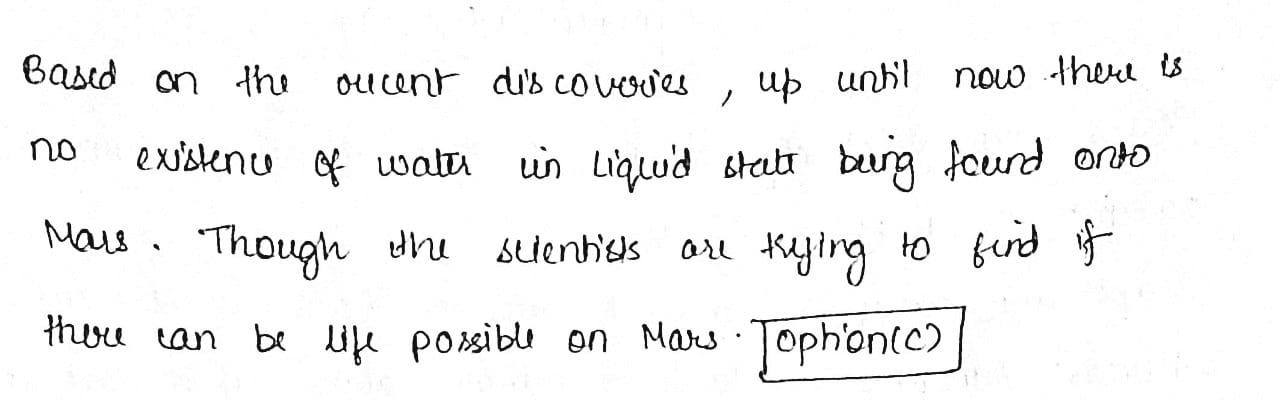 Based on the recent discoveries, up until now there is
no existence of water in Liquid state being found onto
Mars. Though the scientists are trying to find if
there can be life possible on Mars. option(c)